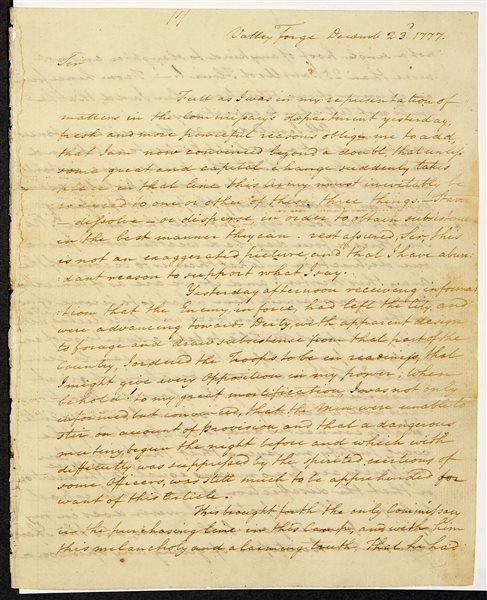 /1/
Valley Forge Decemb 23.d 1777.
Sir
Full as I was in my representation of
matters in the Commissary's department yesterday,
fresh and more powerful reasons oblige me to add,
that I am now convinced beyond a doubt, that unless
some great and capital change suddenly takes
place in that line this Army must inevitably be
reduced to one or other of these three things. Starve
- dissolve - or disperse, in order to obtain subsistence
in the best manner they can. rest assured, Sir, this
is not an exaggerated picture, and that I have abun
:dant reason to support what I say.
Yesterday afternoon receiving informa
:tion that the Enemy, in force, had left the City, and
were advancing towards Derby, with apparent design
to forage and draw subsistence from that part of the
Country, I ordered the Troops to be in readiness, that
I might give every Opposition in my power; When
behold! to my great mortification, I was not only
informed but convinced, that the Men were unable to
stir on account of provision, and that a dangerous
mutiny, begun the night before and which with
difficulty was suppressed by the spirited exertions of
some Officers, was still much to be apprehended for
want of this Article.
This brought forth the only Commissary
in the purchasing line in this Camp, and with him
this melancholy and alarming truth, that he had